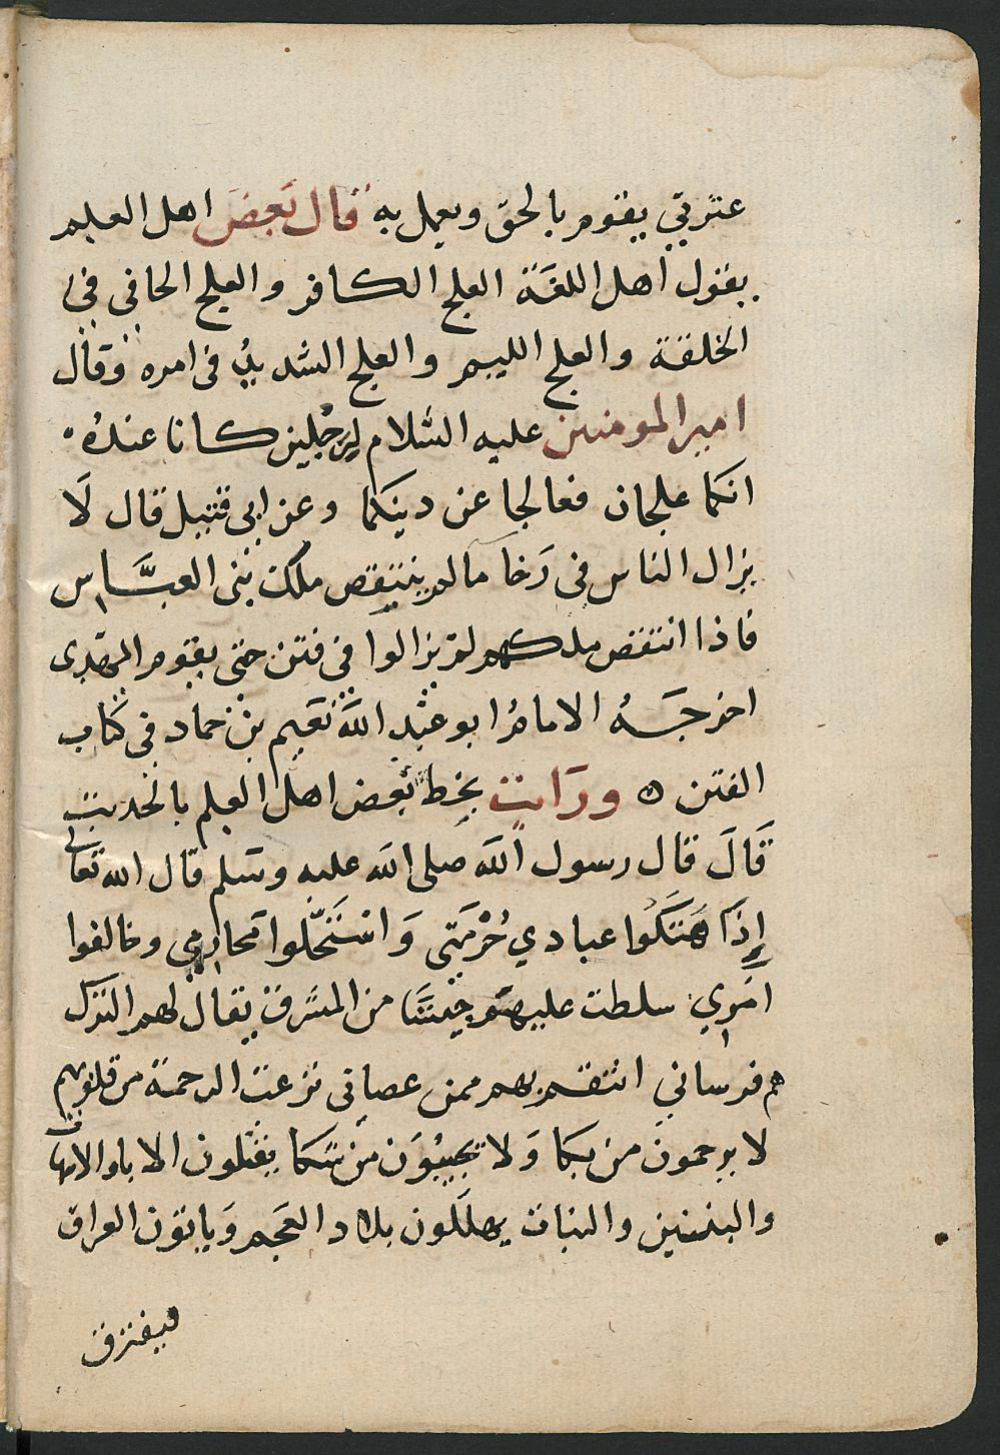 عترتي يقوم بالحق ويعمل به قال بَعضَ اهل العلم
يقول اهل اللغَة العلج الكافر والعلج الجافي في
الخلقة والعلج الليم والعلج الشديدُ في امره وقال
امير المومنين عليه السَّلام لِرَجُلين كانا عندهُ
انكما علجان فعالجا عن دينكما وعن ابي قتيل قال لَا
يزال الناس في رَخا مالم ينتقص ملك بني العبَّاس
فاذا انتقض ملكهم لم يزالوا في فتن حتى يقوم المهدى
اخرجَهُ الامامُ ابو عَبْد اللَّه نعَيم بن حماد في كتاب
الفتن ه ورَايت بخط بَعض اهل العلم بالحديث
قَالَ قال رسول اللَّه صلى الله عليه وسَلم قال الله تعالى
إِذَا هَتَكُوا عبادي حُرْمَتي وَاسْتَحَلّوا مَحارِمي وخالفوا
امْرِي سلطت عليهم جَيْشًا من المشرق يقال لهم الترك
هم فرساني انتقم بهم ممن عصاني نزعت الرحمة من قلوبهم
لا يرحمون من بكا وَلا يجيبُوَن مَن شكا يقتلون الابا والامهات
والبنين والبنات يهلَلَون بلاد العَجم وَياتون العراق
فيفترق